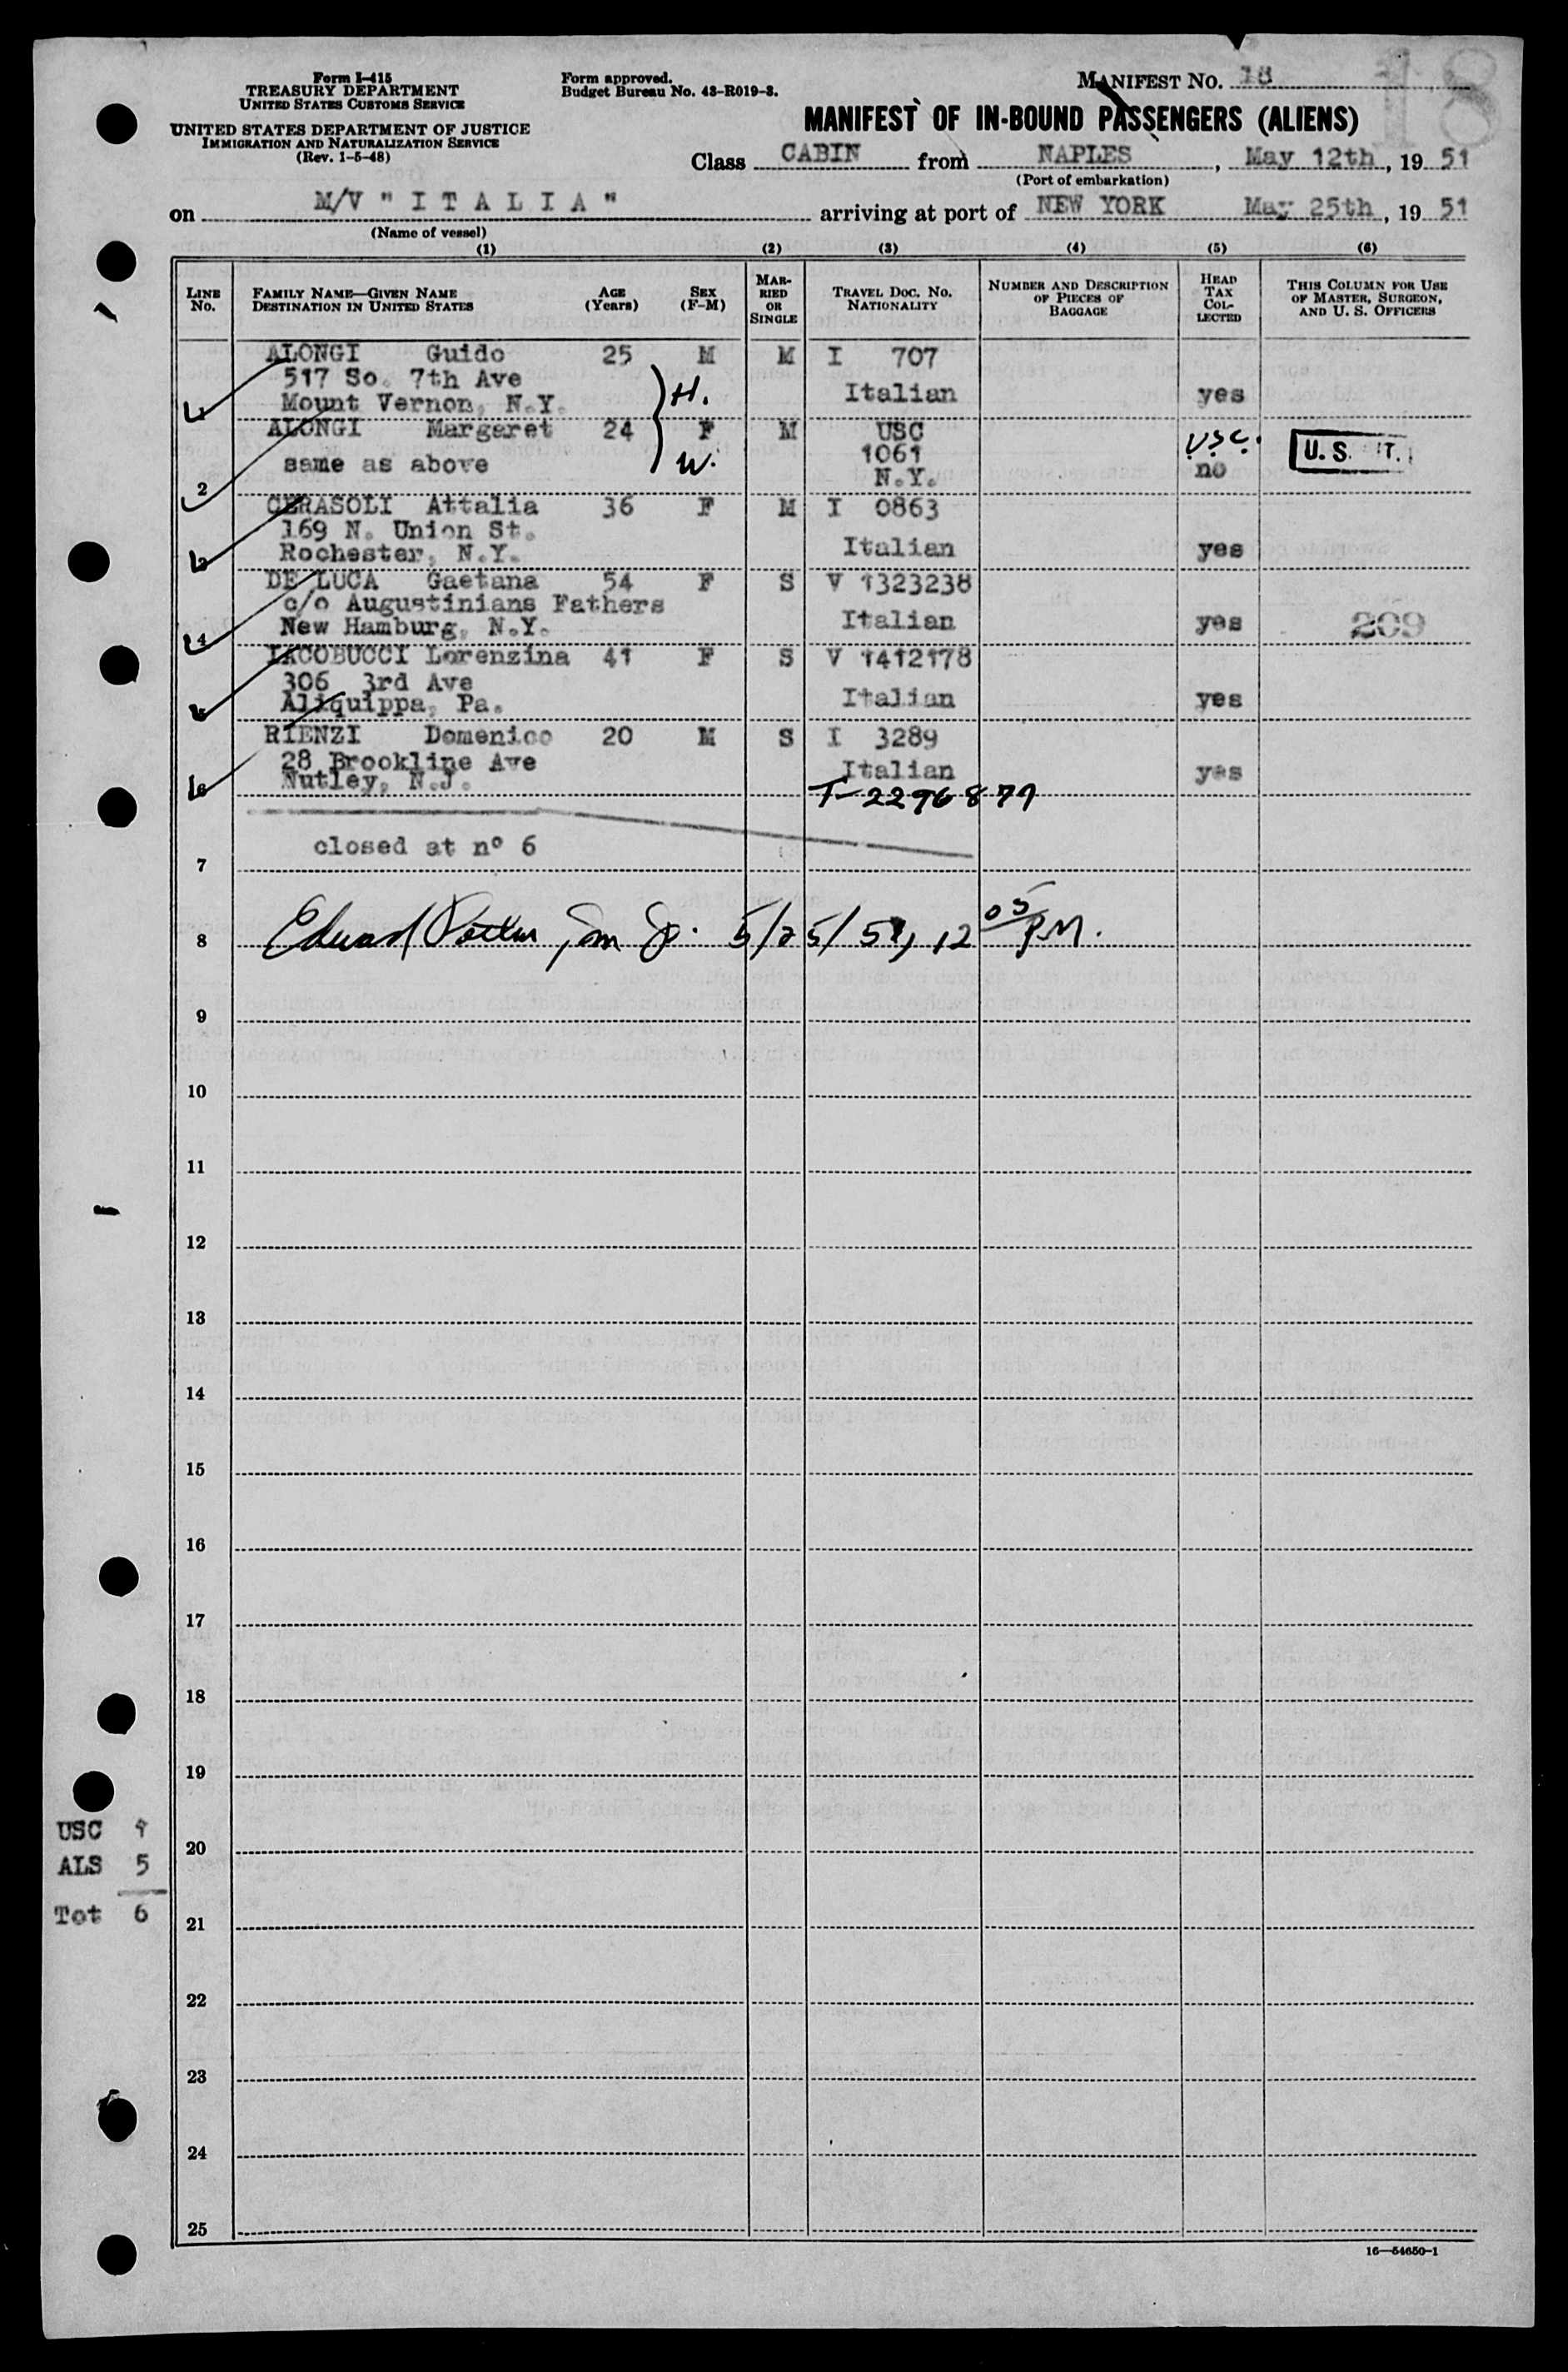 Form I-415
TREASURY DEPARTMENT
UNITED STATES CUSTOMS SERVICE
UNITED STATES DEPARTMENT OF JUSTICE
IMMIGRATION AND NATURALIZATION SERVICE
(Rev. 1-5-48)
Form approved.
Budget Bureau No. 43-R019-3.
MANIFEST NO. 18
18
MANIFEST OF IN-BOUND PASSENGERS (ALIENS)
Class CABIN from NAPLES, May 12th, 19 51
(Port of embarkation)
on M/V " I T A L I A " arriving at port of NEW YORK May 25th, 19 51
(Name of vessel)
(1) (2) (3) (4) (5) (6)
LINE No. FAMILY NAME—GIVEN NAME DESTINATION IN UNITED STATES AGE (Years) SEX (F-M) MARRIED OR SINGLE TRAVEL DOC. NO. NATIONALITY NUMBER AND DESCRIPTION OF PIECES OF BAGGAGE HEAD TAX COLLECTED THIS COLUMN FOR USE OF MASTER, SURGEON, AND U. S. OFFICERS
ALONGI Guido 25 M M I 707
517 So. 7th Ave H. Italian yes
1 Mount Vernon, N.Y.
ALONGI Margaret 24 F M USC U.S.C.
same as above W. 1061 no U. S. IT.
2 N.Y.
CERASOLI Attalia 36 F M I 0863
169 N. Union St.
3 Rochester, N.Y. Italian yes
DE LUCA Gaetana 54 F S V 1323238
c/o Augustinians Fathers
4 New Hamburg, N.Y. Italian yes 209
IACOBUCCI Lorenzina 41 F S V 1412178
306 3rd Ave
5 Aliquippa, Pa. Italian yes
RIENZI Domenico 20 M S I 3289
28 Brookline Ave
6 Nutley, N.J. Italian yes
T-2296877
closed at nº 6
7
8 Edward 5/25/51, 12 05 P.M.
9
10
11
12
13
14
15
16
17
18
19
USC 1
20
ALS 5
Tot 6
21
22
23
24
25
16—54650-1